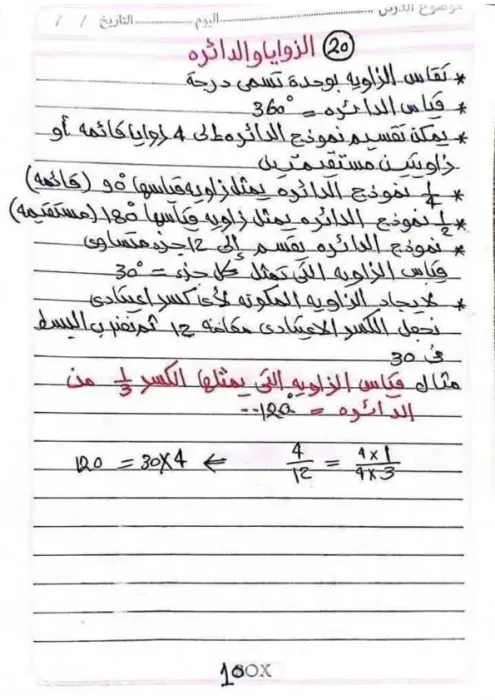 موضوع الدرس ........ اليوم ........ التاريخ / /
(20) الزوايا والدائره
* تقاس الزاويه بوحدة تسمى درجة
* قياس الدائره = 360°
* يمكن تقسيم نموذج الدائره الى 4 زوايا قائمه أو
زاويتين مستقيمتين
* 1/4 نموذج الدائره يمثل زاويه قياسها 90° (قائمه)
* 1/2 نموذج الدائره يمثل زاويه قياسها 180° (مستقيمه)
* نموذج الدائره يقسم إلى 12 جزء متساوى
قياس الزاويه التى تمثل كل جزء = 30°
* لايجاد الزاويه المكونه لأى كسر اعتيادى
نجعل الكسر الاعتيادى مقامه 12 ثم نضرب البسط
فى 30
مثال قياس الزاويه التى يمثلها الكسر 1/3 من
الدائره = 120° --
4×1/4×3 = 4/12 ⇐ 30×4 = 120
100X